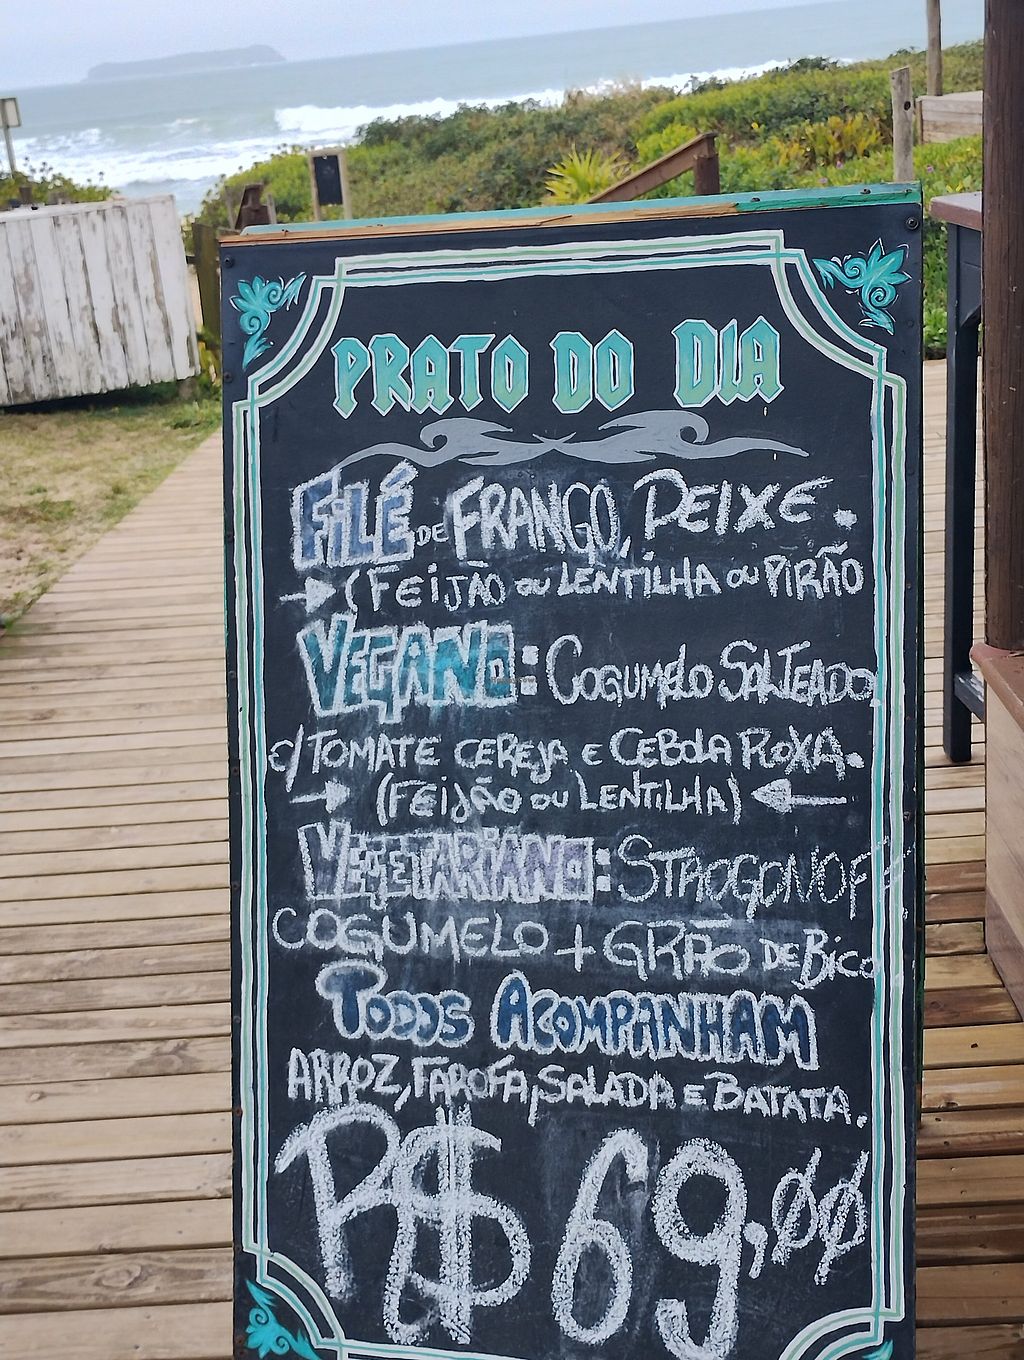 PRATO DO DIA
FILÉ DE FRANGO, PEIXE.
(FEIJÃO OU LENTILHA OU PIRÃO
VEGANO: COGUMELO SALTEADO
c/ TOMATE CEREJA E CEBOLA ROXA.
(FEIJÃO OU LENTILHA)
VEGETARIANO: STROGONOFE
COGUMELO + GRÃO DE BICO
TODOS ACOMPANHAM
ARROZ, FAROFA, SALADA E BATATA.
R$ 69,00